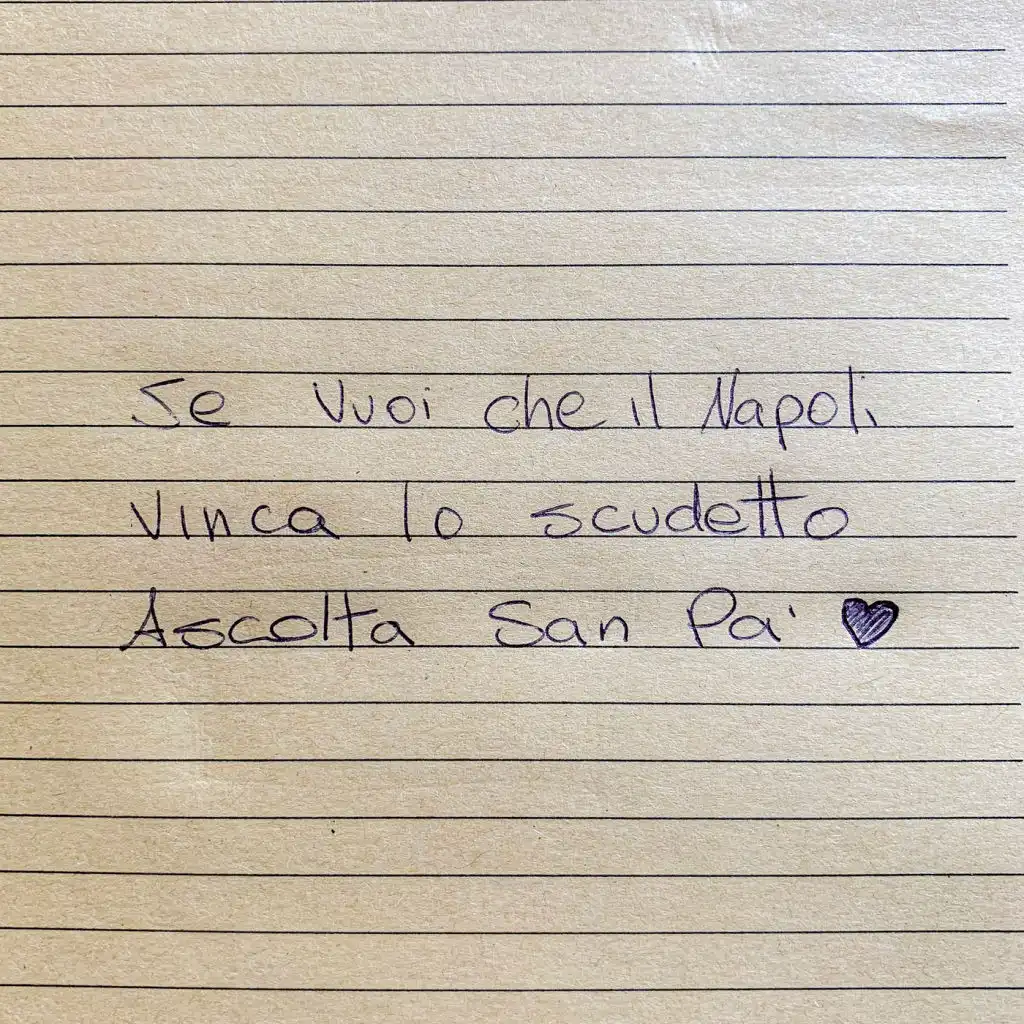 Se Vuoi che il Napoli
Vinca lo scudetto
Ascolta San Pa' ♥